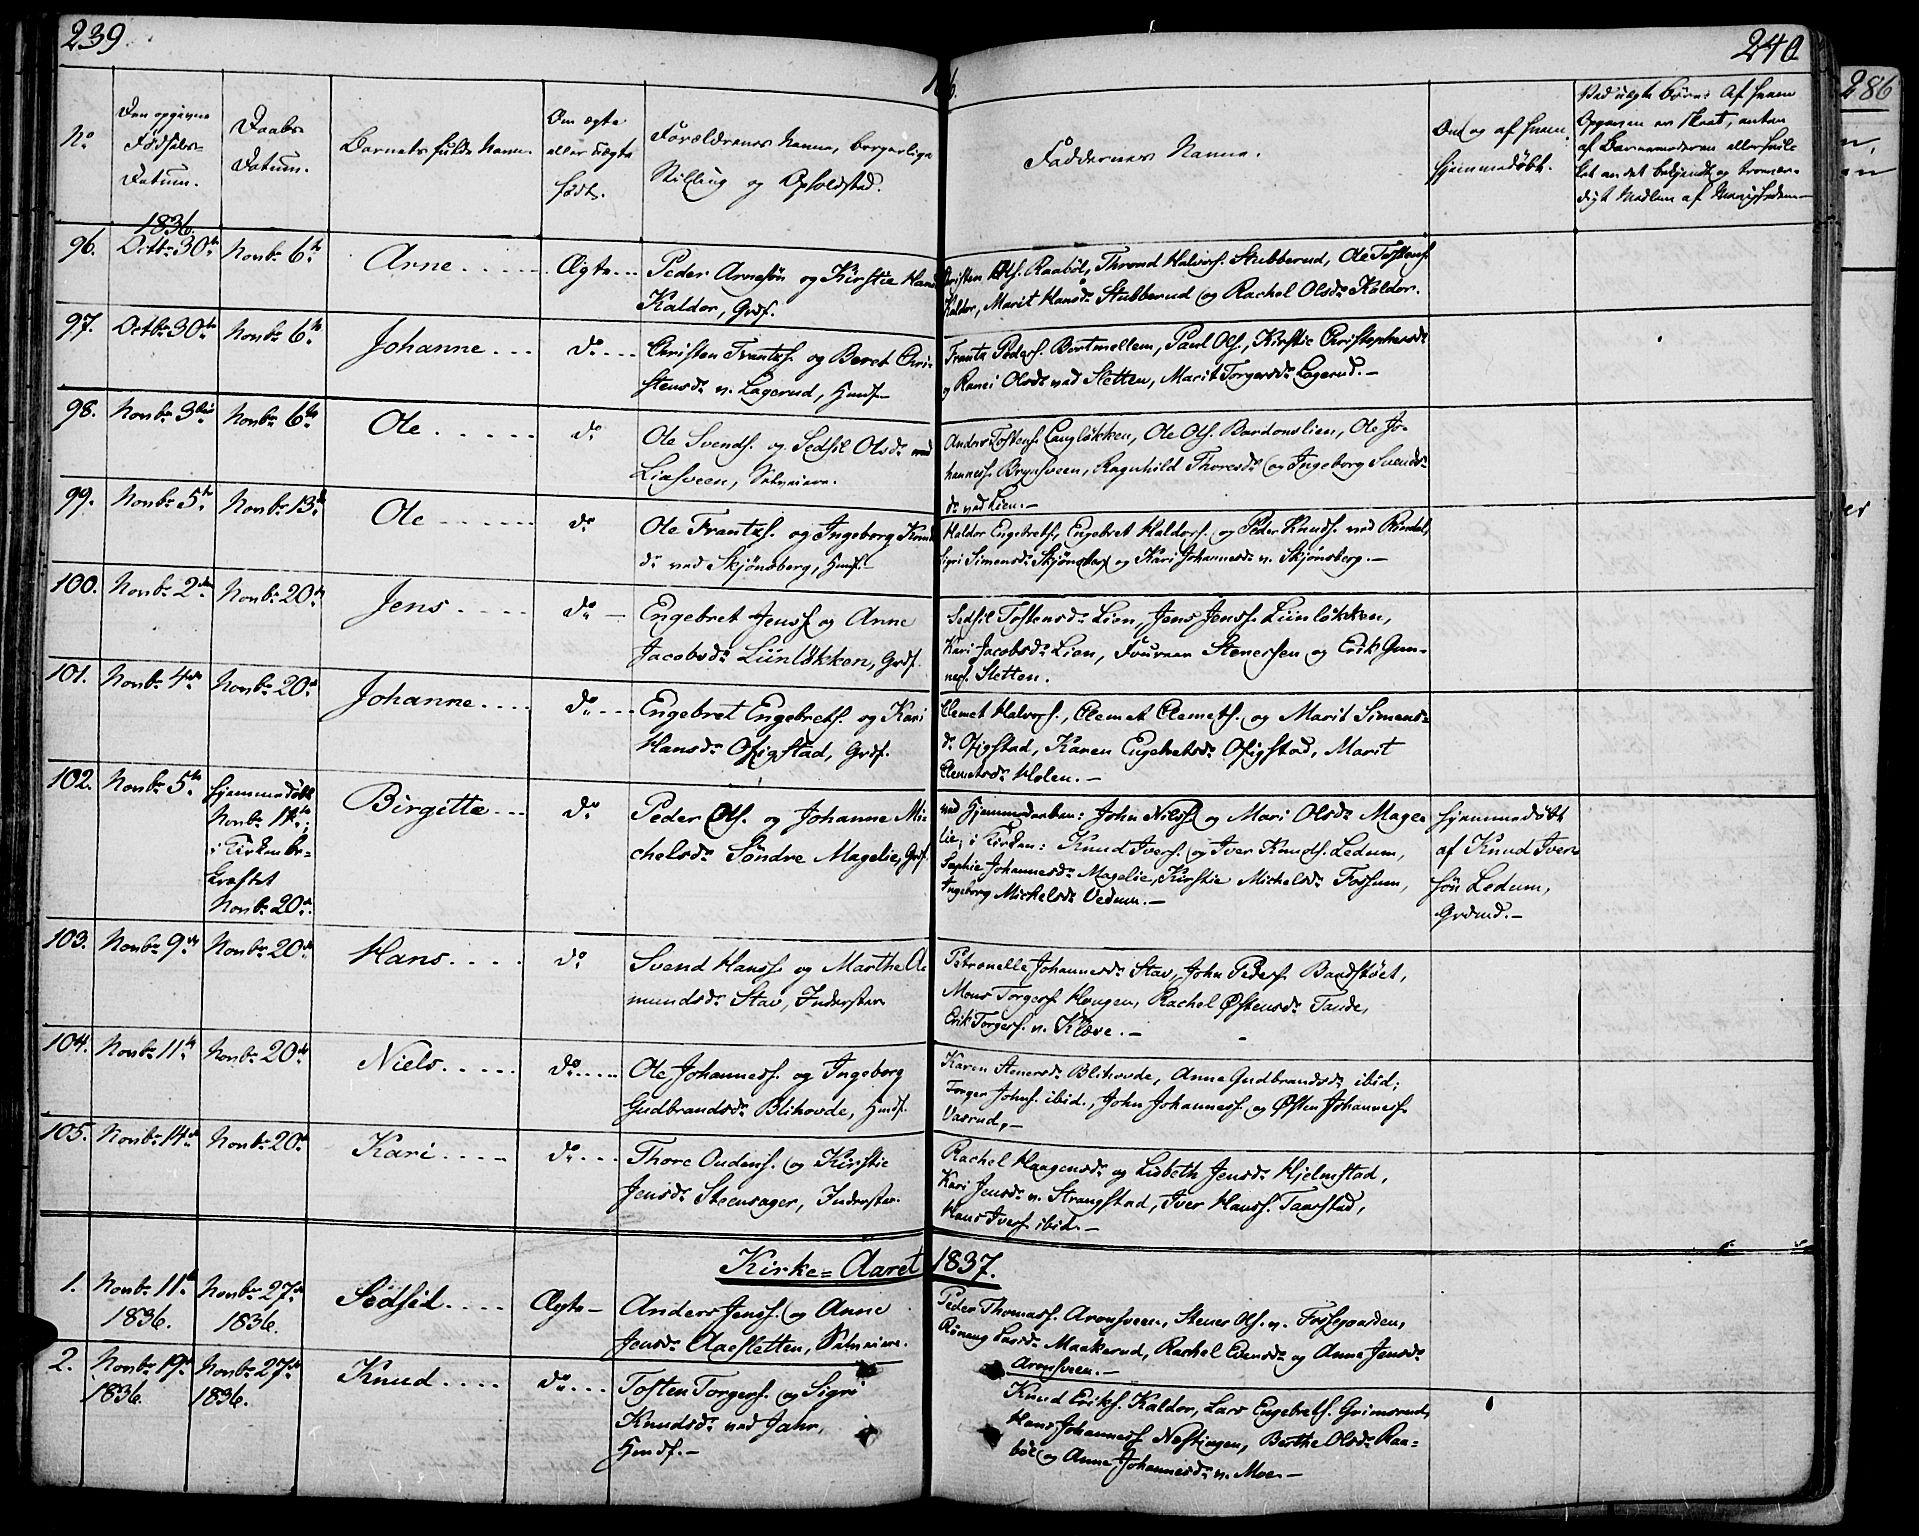 239
240
286
16.
No
Den opgivne
Fødsels-
Datum.
Daabs-
Datum.
Barnets fulde Navn.
Om ægte
eller uægte
født.
Forældrenes Navne, borgerlige
Stilling og Opholdsted.
Faddernes Navne.
Om og af hvem
hjemmedøbt.
Ved uægte Børn: Af hvem
Opgaven er skeet, enten
af Barnemoderen eller hvil-
ket andet bekjendt og troevær-
digt Medlem af Menigheden
1836.
96. Octbr 30te Novbr 6te Arne..... Ægte... Peder Arnesøn og Kirstie Hansd
Kaldor, Grdf.
Christen Ols. Raabøl, Thrond Halvors. Stubberud, Ole Tostens.
Kaldor, Marit Hansdr Stubberud og Rachel Olsdr Kaldor.
97. Octbr 30te Novbr 6te Johanne... do... Christen Frantzs. og Beret Chri-
stensdr v. Lagerud, Huusf.
Frantz Peders. Bortmellem, Paul Ols., Kirstie Christophersdr
og Ranei Olsdr ved Sletten, Marit Torgersdr Lagerud.-
98. Novbr 3die Novbr 6te Ole..... do Ole Svends. og Sedsil Olsdr ved
Liesveen, Selveiere.
Anders Tostens. Langløkken, Ole Ols. Bardonslien, Ole Jo-
hanness. Brynsveen, Ragnhild Thoresdr og Ingeborg Svends-
dr ved Lien.-
99. Novbr 5te Novbr 13de Ole...... do Ole Frantzs. og Ingeborg Knud
dr ved Skjønsberg, Huusf.
Haldor Engebrets., Engebret Haldors. og Peder Knuds. ved Rindal,
Sigri Simensdr Skjønsberg og Kari Johannesdr v. Skjønsberg.-
100. Novbr 2den Novbr 20de Jens.... do - Engebret Jenss. og Anne
Jacobsdr Liinløkken, Grdf.
Sedsil Tostensdr Lien, Jens Jenss. Liinløkken,
Kari Jacobsdr Lien, Fouraar Stenersen og Erik Gun-
ners. Sletten.
101. Novbr 4de Novbr 20de Johanne.... do... Engebret Engebrets. og Kari
Hansdr Ofigstad, Grdf.
Clemet Halvors., Clemet Clemets. og Marit Simens-
dr Ofigstad, Karen Engebretsdr Ofigstad, Marit
Clemetsdr Holen.-
102. Novbr 5te Hjemmedøbt
Novbr 11te;
i Kirken be-
kræftet
Novbr 20de.
Birgitte... do Peder Ols. og Johanne Mi-
chelsdr Søndre Magelie, Grdf.
ved Hjemmedaaben: John Nilss. og Mari Olsdr Mage-
lie; i Kirken: Knud Ivers. og Iver Knuds. Ledum,
Sophie Johannesdr Magelie, Kirstie Michelsdr Fossum,
Ingeborg Mickelsdr Vedum.-
Hjemmedøbt
af Knud Iver-
søn Ledum,
Grdmd.-
103. Novbr 9de Novbr 20de Hans.... do Svend Hanss. og Marthe Aa
mundsdr Stav, Inderster
Petronelle Johannesdr Stav, John Peders. Bandstøet,
Mons Torgers. Haugen, Rachel Østensdr Tande,
Erik Torgers. v. Klæve.-
104. Novbr 11te Novbr 20de Niels..... do..... Ole Johanness. og Ingeborg
Gudbrandsdr Blihovde, Huusf.
Karen Stenersdr Blihovde, Anne Gudbrandsdr ibid;
Torger Johns. ibid., John Johanness. og Østen Johanness.
Vasrud,-
105. Novbr 14de Novbr 20de Kari.... do... Thore Oudens. og Kirstie
Jensdr Steensager, Inderster.
Rachel Haagensdr og Lisbeth Jensdr Hjelmstad,
Kari Jensdr v. Strangstad, Iver Hanss. Taarstad,
Hans Ivers. ibid.-
Kirke=Aaret 1837.
1. Novbr 11te
1836.
Novbr 27de
1836.
Sedsel.... Ægte- Anders Jenss. og Anne
Jensdr Aaesletten, Selveiere.
Peder Thomass. Aronsveen, Stener Ols. v. Fossegaarden,
Rønnaug Larsdr Maakerud, Rachel Evensdr og Anne Jensdr
Aronsveen.-
2. Novbr 19de
1836.
Novbr 27de
1836.
Knud.... do... Tosten Torgers. og Sigri
Knudsdr ved Jahr,
Huusf.-
Knud Eriks. Kaldor, Lars Engebrets. Grimsrud,
Hans Johanness. Nestingen, Berthe Olsdr Raa-
bøl og Anne Johannesdr v. Moe.-